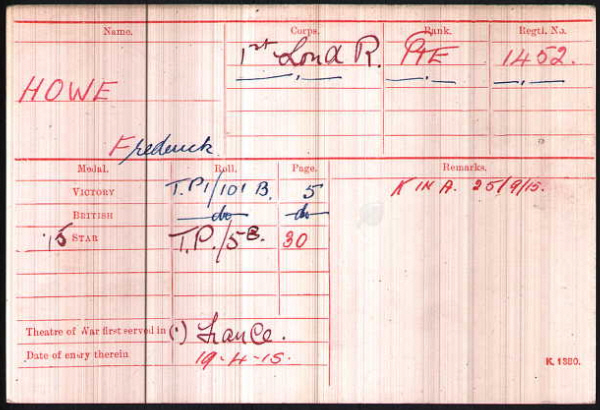 Name. Corps. Rank. Regtl. No.
HOWE 1st Lond R. Pte 1452.
" " " "
Frederick
Medal. Roll. Page. Remarks.
VICTORY T.P.1/101 B. 5 K in A. 25/9/15.
BRITISH do do
15 STAR T.P./5B. 30
Theatre of War first served in (1) France.
Date of entry therein 19-4-15.
K. 1380.